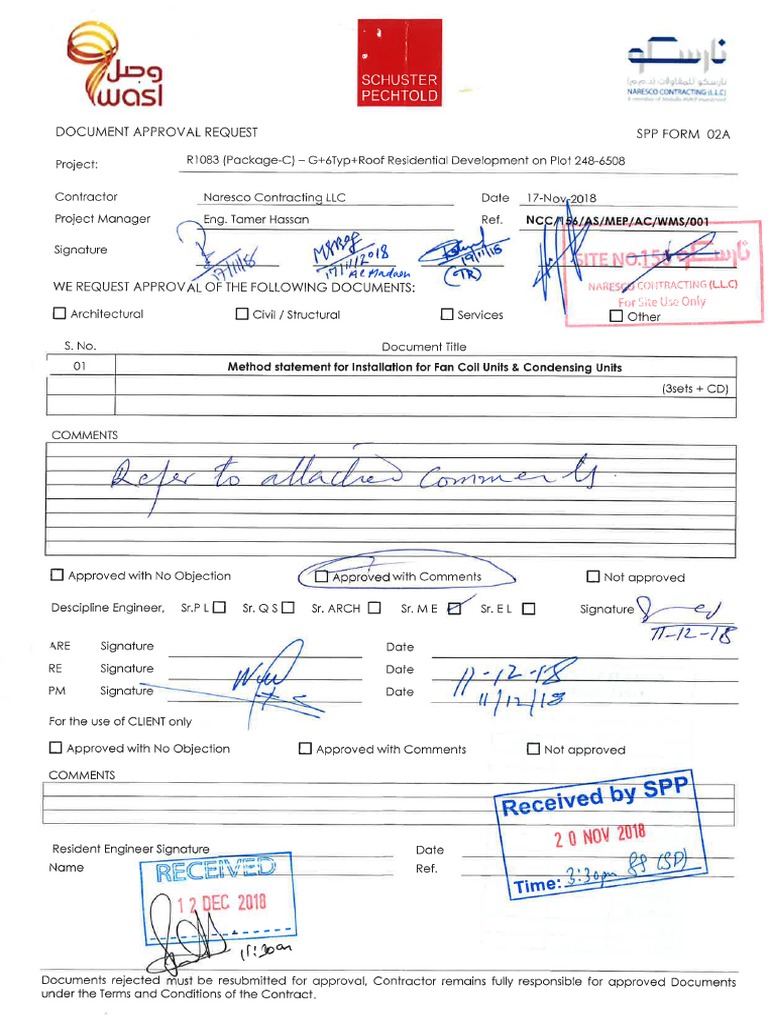 وصل
wasl
SCHUSTER
PECHTOLD
نارسكو
نارسكو للمقاولات (ذ.م.م)
NARESCO CONTRACTING (L.L.C)
DOCUMENT APPROVAL REQUEST
SPP FORM 02A
Project: R1083 (Package-C) – G+6Typ+Roof Residential Development on Plot 248-6508
Contractor Naresco Contracting LLC Date 17-Nov-2018
Project Manager Eng. Tamer Hassan Ref. NCC/156/AS/MEP/AC/WMS/001
Signature 17/11/18 17/11/2018 19/11/18 (TR)
SITE NO.156 نارسكو
NARESCO CONTRACTING (L.L.C)
For Site Use Only
WE REQUEST APPROVAL OF THE FOLLOWING DOCUMENTS:
Architectural Civil / Structural Services Other
S. No. Document Title
01 Method statement for Installation for Fan Coil Units & Condensing Units
(3sets + CD)
COMMENTS
Refer to attached comments.
Approved with No Objection Approved with Comments Not approved
Descipline Engineer, Sr.P L Sr. Q S Sr. ARCH Sr. M E Sr. E L Signature
11-12-18
ARE Signature Date
RE Signature Date 11-12-18
PM Signature Date 11/12/18
For the use of CLIENT only
Approved with No Objection Approved with Comments Not approved
COMMENTS
Received by SPP
20 NOV 2018
Time: 3:30pm
Resident Engineer Signature Date
Name Ref.
RECEIVED
12 DEC 2018
11:30am
Documents rejected must be resubmitted for approval, Contractor remains fully responsible for approved Documents
under the Terms and Conditions of the Contract.